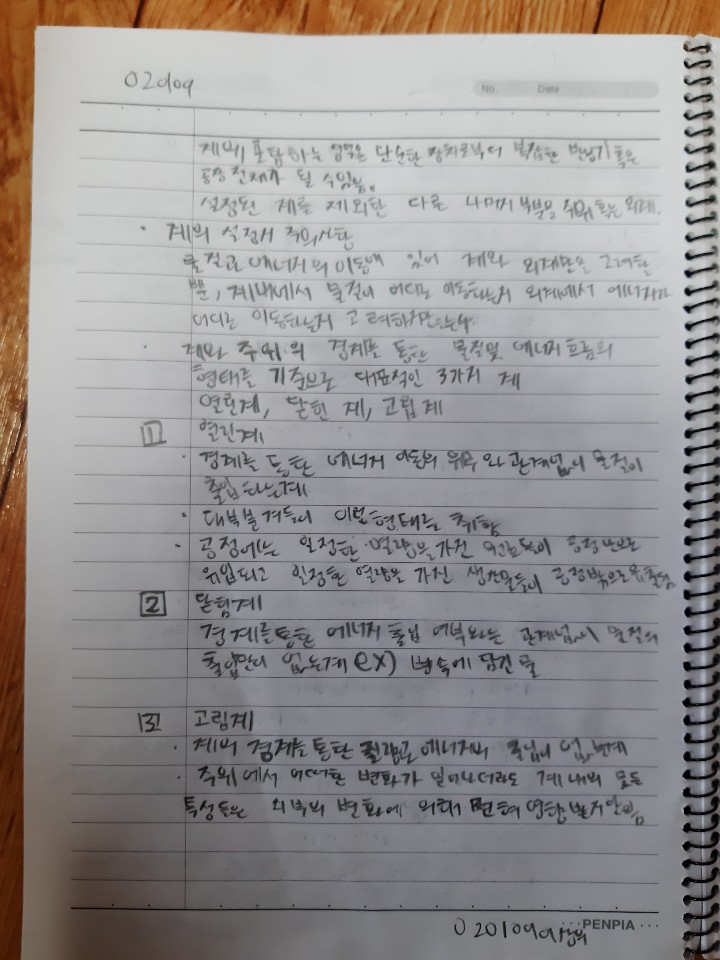 02dog
No. Date
계에 포함하는 영역은 단순한 장치로부터 복잡한 반응기 혹은
공장 전체가 될 수 있음.
설정된 계를 제외한 다른 나머지 부분을 주위 혹은 외계.
· 계의 설정시 주의사항
물질과 에너지의 이동에 있어 계와 외계만을 고려할
뿐, 계내에서 물질이 어디로 이동하는지 외계에서 에너지가
어디로 이동하는지 고려하지
· 계와 주위의 경계를 통한 물질 및 에너지 흐름의
형태를 기준으로 대표적인 3가지 계
열린계, 닫힌 계, 고립계
1 열린계
· 경계를 통한 에너지 이동의 유무와 관계없이 물질이
출입하는계
· 대부분 겨들이 이런 형태를 취함
· 공정에는 일정한 열량을 가진 공정안으로
유입되고 일정한 열량을 가진 생산물들이 공정밖으로 유출됨
2 닫힘계
경계를 통한 에너지 출입 여부와는 관계없이 물질의
출입만이 없는계 ex) 병속에 담긴 물
3 고립계
· 계의 경계를 통한 질량과 에너지의 출입이 없는계
· 주위에서 어떠한 변화가 일어나더라도 계 내의 모든
특성들은 외부의 변화에 의해 전혀 영향 받지 않음
PENPIA